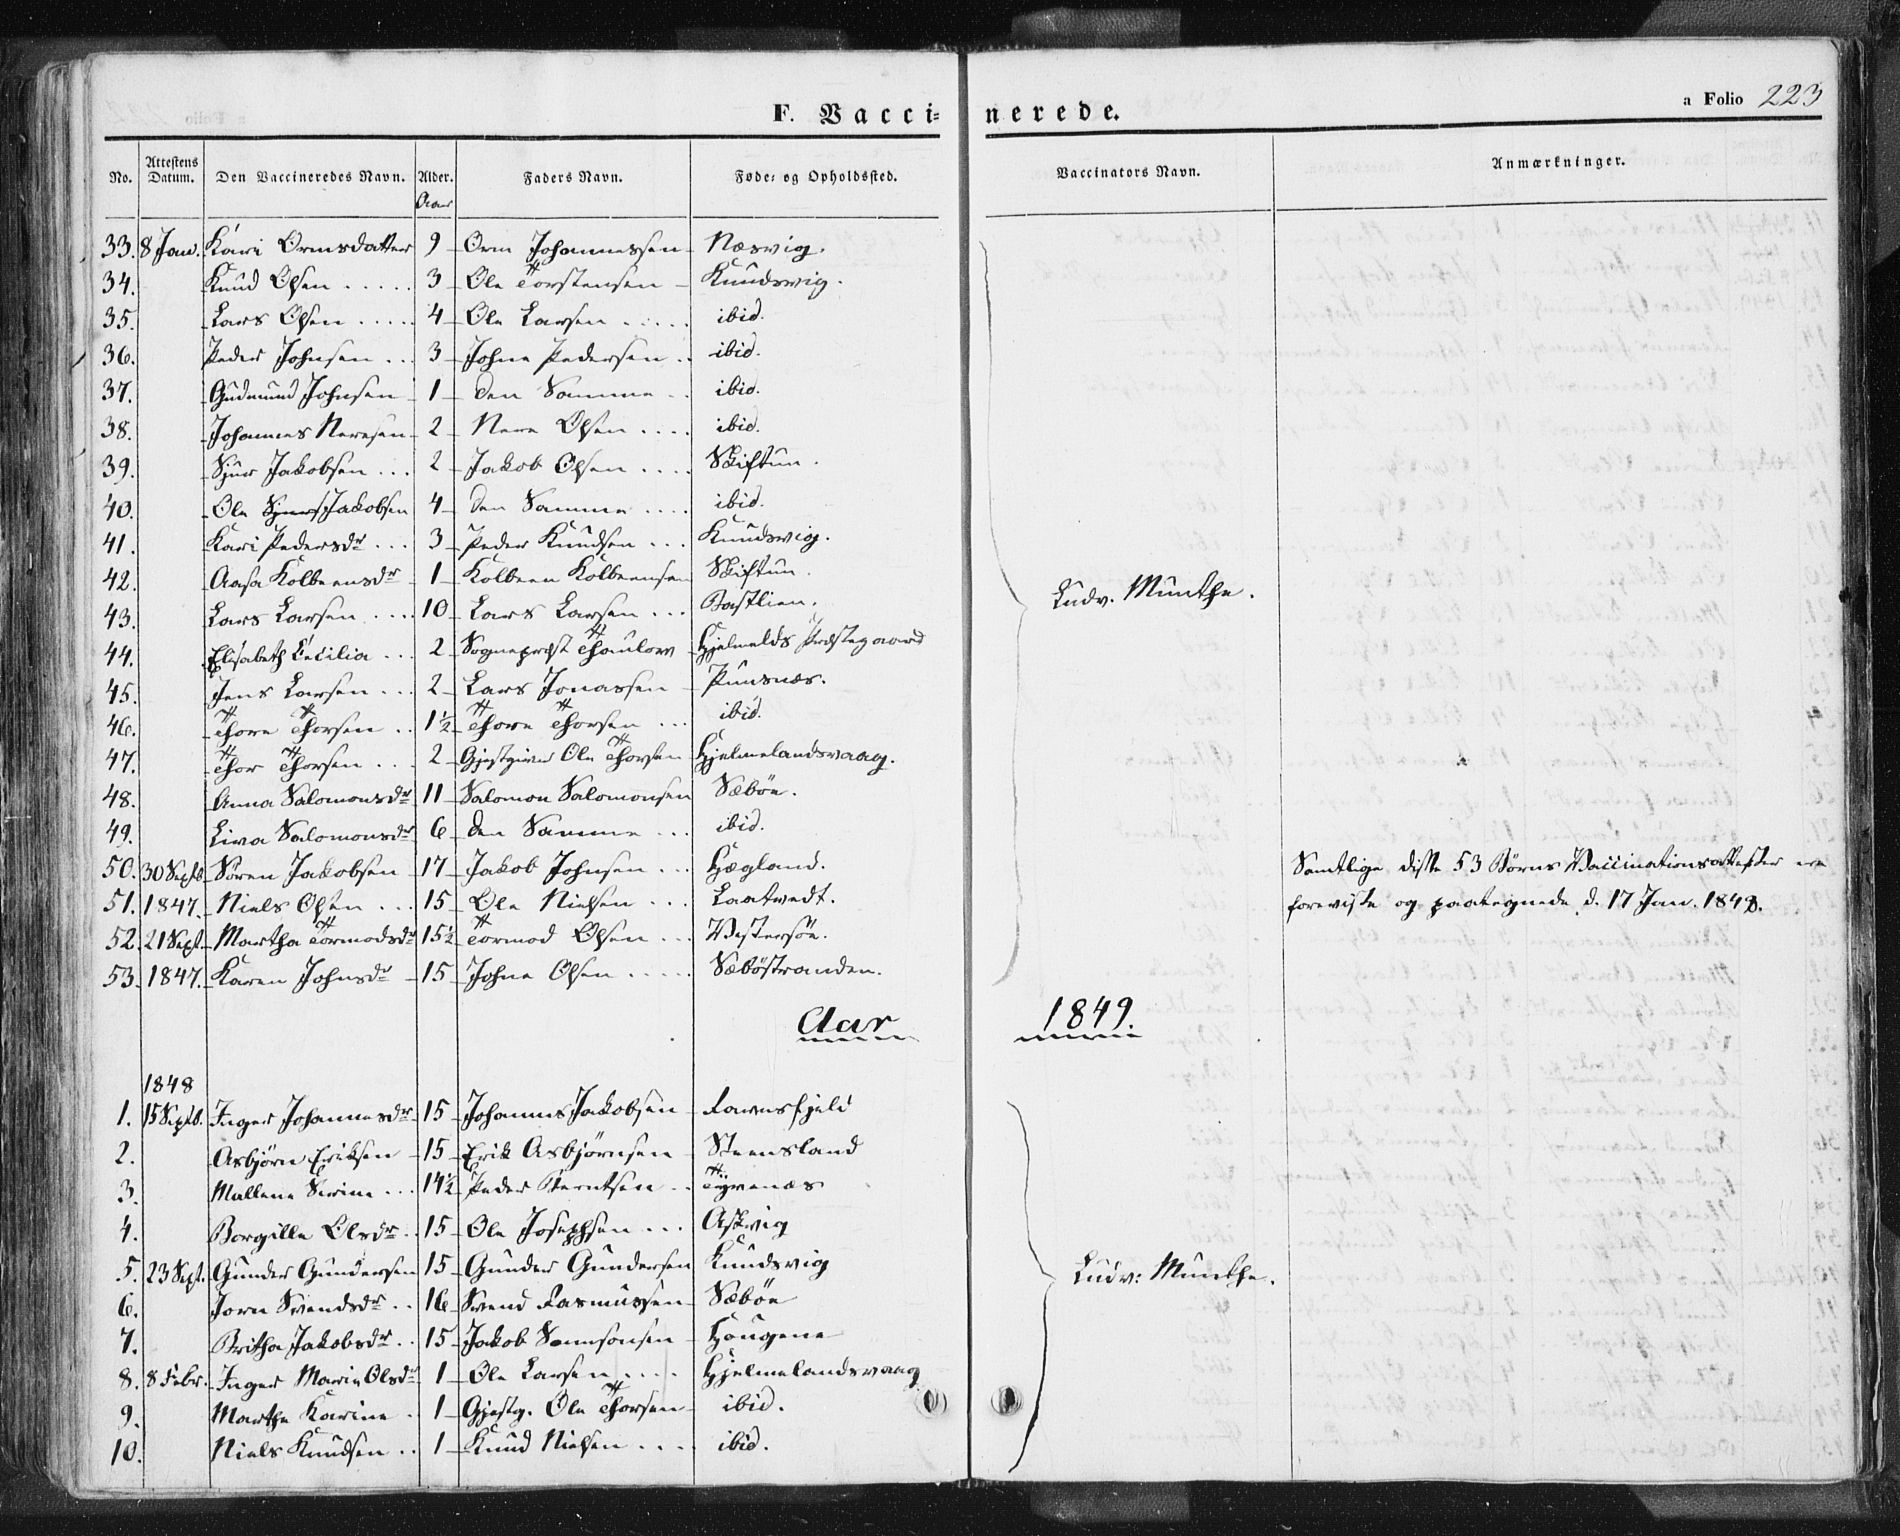 a Folio 223
F. Vaccinerede.
No. Attestens Datum. Den Vaccineredes Navn. Alder. Faders Navn. Føde- og Opholdssted. Vaccinators Navn. Anmærkninger.
Aar
33. 8 Jan. Kari Ormsdatter 9 Orm Johannessen Næsvig.
34. Knud Olsen ..... 3 Ole Torstensen Knudsvig.
35. Lars Olsen ..... 4 Ole Larsen ..... ibid.
36. Peder Johnsen ... 3 Johne Pedersen .. ibid.
37. Gudmund Johnsen 1 den Samme .. ibid.
38. Johannes Neresen 2 Nere Olsen .... ibid.
39. Sjur Jakobsen ... 2 Jakob Olsen .... Skiftun.
40. Ole Jakobsen 4 den Samme .... ibid.
41. Kari Pedersdr ... 3 Peder Knudsen ... Knudsvig.
42. Aasa Kolbeensdr 1 Kolbeen Kolbeensen Skiftun.
43. Lars Larsen .... 10 Lars Larsen ... Bastlien. Ludv. Munthe.
44. Elisabeth Cecilia ... 2 Sogneprest Thaulow Hjelmelds Præstegaard
45. Jens Larsen ... 2 Lars Jonassen Puntsnæs.
46. Thore Thorsen .. 1½ Thore Thorsen ... ibid.
47. Thor Thorsen ... 2 Gjestgiver Ole Thorsen Hjelmelandsvaag.
48. Anna Salomonsdr 11 Salomon Salomonsen Sæbøe.
49. Liva Salomonsdr 6 den Samme ... ibid.
50. 30 Septb. Søren Jakobsen 17 Jakob Johnsen ... Hægland. Samtlige disse 53 Børns Vaccinationsattester ere
51. 1847. Niels Olsen ... 15 Ole Nielsen ... Laatvedt. foreviste og paategnede d. 17 Jan. 1848.
52. 21 Sept. Martha Tormodsdr 15½ Tormod Olsen ... Vestersøe.
53. 1847. Karen Johnsdr 15 Johne Olsen ..... Sæbøstranden.
Aar 1849.
1848
1. 15 Septb. Inger Johannesdr 15 Johannes Jakobsen Ravnsfjeld
2. Asbjørn Eriksen 15 Erik Asbjørnsen Steensland
3. Mallene Serine ... 14½ Peder Berntsen .. Tyvenæs
4. Borgille Olsdr .. 15 Ole Josephsen ... Askvig
5. 23 Sept. Gunder Gundersen 15 Gunder Gundersen Knudsvig Ludv: Munthe.
6. Jorn Svendsdr .. 16 Svend Rasmussen Sæbøe
7. Britha Jakobsdr .. 15 Jakob Samsonsen Hougene
8. 8 Febr. Inger Marie Olsdr 1 Ole Larsen .... Hjelmelandsvaag
9. Marthe Karine . 1 Gjestg. Ole Thorsen ibid.
10. Niels Knudsen .. 1 Knud Nielsen .... ibid.